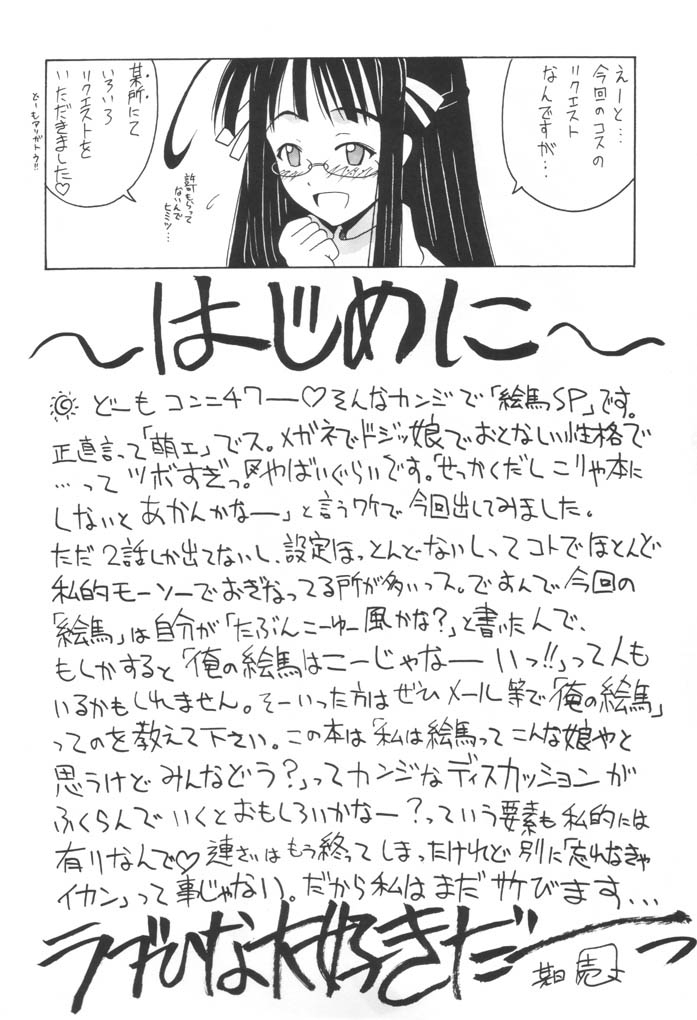 えーと…
今回のコスの
リクエスト
なんですが…
某所にて
いろいろ
リクエストを
いただきました♡
どーもアリガトウ!!
許可もらって
ないんで
ヒミツ…
〜はじめに〜
どーもコンニチワー♡そんなカンジで「絵馬SP」です。
正直言って「萌エ」でス。メガネでドジッ娘でおとなしい性格で
…ってツボすぎっ。やばいぐらいです。「せっかくだしこりゃ本に
しないとあかんかなー」と言うワケで今回出してみました。
ただ2話しか出てないし、設定ほっとんどないしってコトでほとんど
私的モーソーでおぎなってる所が多いっス。ですんで今回の
「絵馬」は自分が「たぶんこーゆー風かな?」と書いたんで、
もしかすると「俺の絵馬はこーじゃなーいっ!!」って人も
いるかもしれません。そーいった方はぜひメール等で「俺の絵馬」
ってのを教えて下さい。この本は「私は絵馬ってこんな娘やと
思うけどみんなどう?」ってカンジなディスカッションが
ふくらんでいくとおもしろいかなー?っていう要素も私的には
有りなんで♡連さいはもう終ってしまったけれど別に「忘れなきゃ
イカン」って事じゃない。だから私はまだサケびます...
ラブひな大好きだーっ